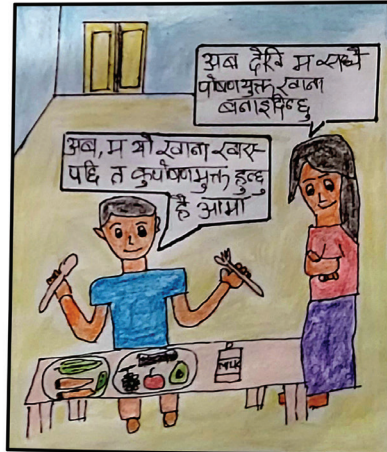 अब देखि म सधैं
पोषणयुक्त खाना
बनाइदिन्छु
अब, म यो खाना खाए
पछि त कुपोषणमुक्त हुन्छु
है आमा
MILK